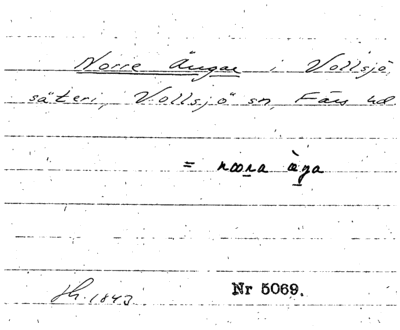 Norre Ängar i Vollsjö
säteri, Vollsjö sn, Färs hd
= noṉa äṉa
1843 Nr 5069.